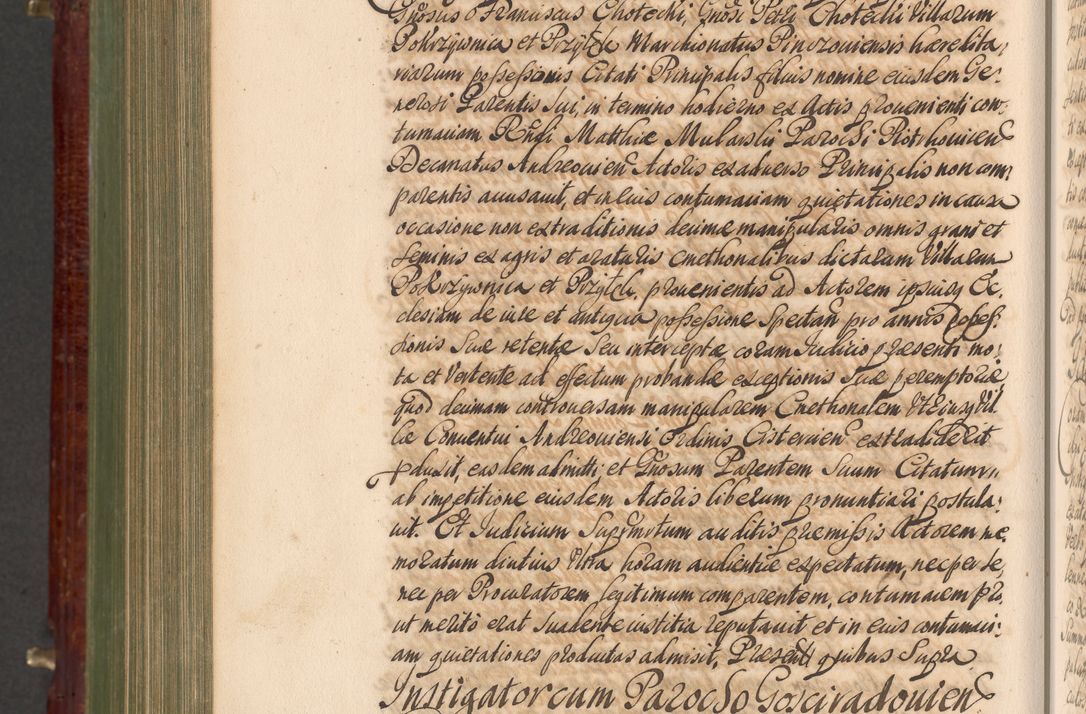 Gnosus Franciscus Chotecki, Gnosi Petri Chotecki Villarum
Pokrzywnica et Przyłęk Marchionatus Pinczouiensis hæredita,
riarum possessionis Citati Principalis filius nomine eiusdem Ge-
nerosi Parentis sui, in termino hodierno ex Actis proueniente con-
tumaciam Rndi Matthiæ Mularski Parochi Piotrkouien
Decanatus Andreouien Actoris ex aduerso Principalis non com,
parentis accusauit, et in eius contumaciam quietationes in causa
occasione non extraditionis decimæ manipularis omnis grani et
seminis ex agris et araturis cmethonalibus dictarum Villarum
Pokrzywnica et Przyłęk, prouenientis ad Actorem ipsiusq Ec,
clesiam de iure et antiqua possessione spectan pro annis posses,
sionis suæ retentæ seu interceptæ coram Iudicio præsenti mo,
ta et vertente ad effectum probandæ exceptionis suæ peremptoriæ,
quod decimam controuersam manipularem Cmethonalem utriusq Vil
læ Conuentui Andreouiensi Ordinis Cistercien extradiderit
pduxit, easdem admitti, et Gnosum Parentem suum Citatum
ab impetitione eiusdem Actoris liberum pronuntiari postula,
uit. Et Iudicium Suprmtum auditis præmissis Actorem me,
moratum diutius ultra horam audientiæ expectatum, nec per se,
nec per Procuratorem legitimum comparentem, contumacem pr
ut merito erat suadente iustitia reputauit et in eius contumaci,
am quietationes productas admisit, Præsent quibus supra
Instigator cum Parocho Gosciradouien